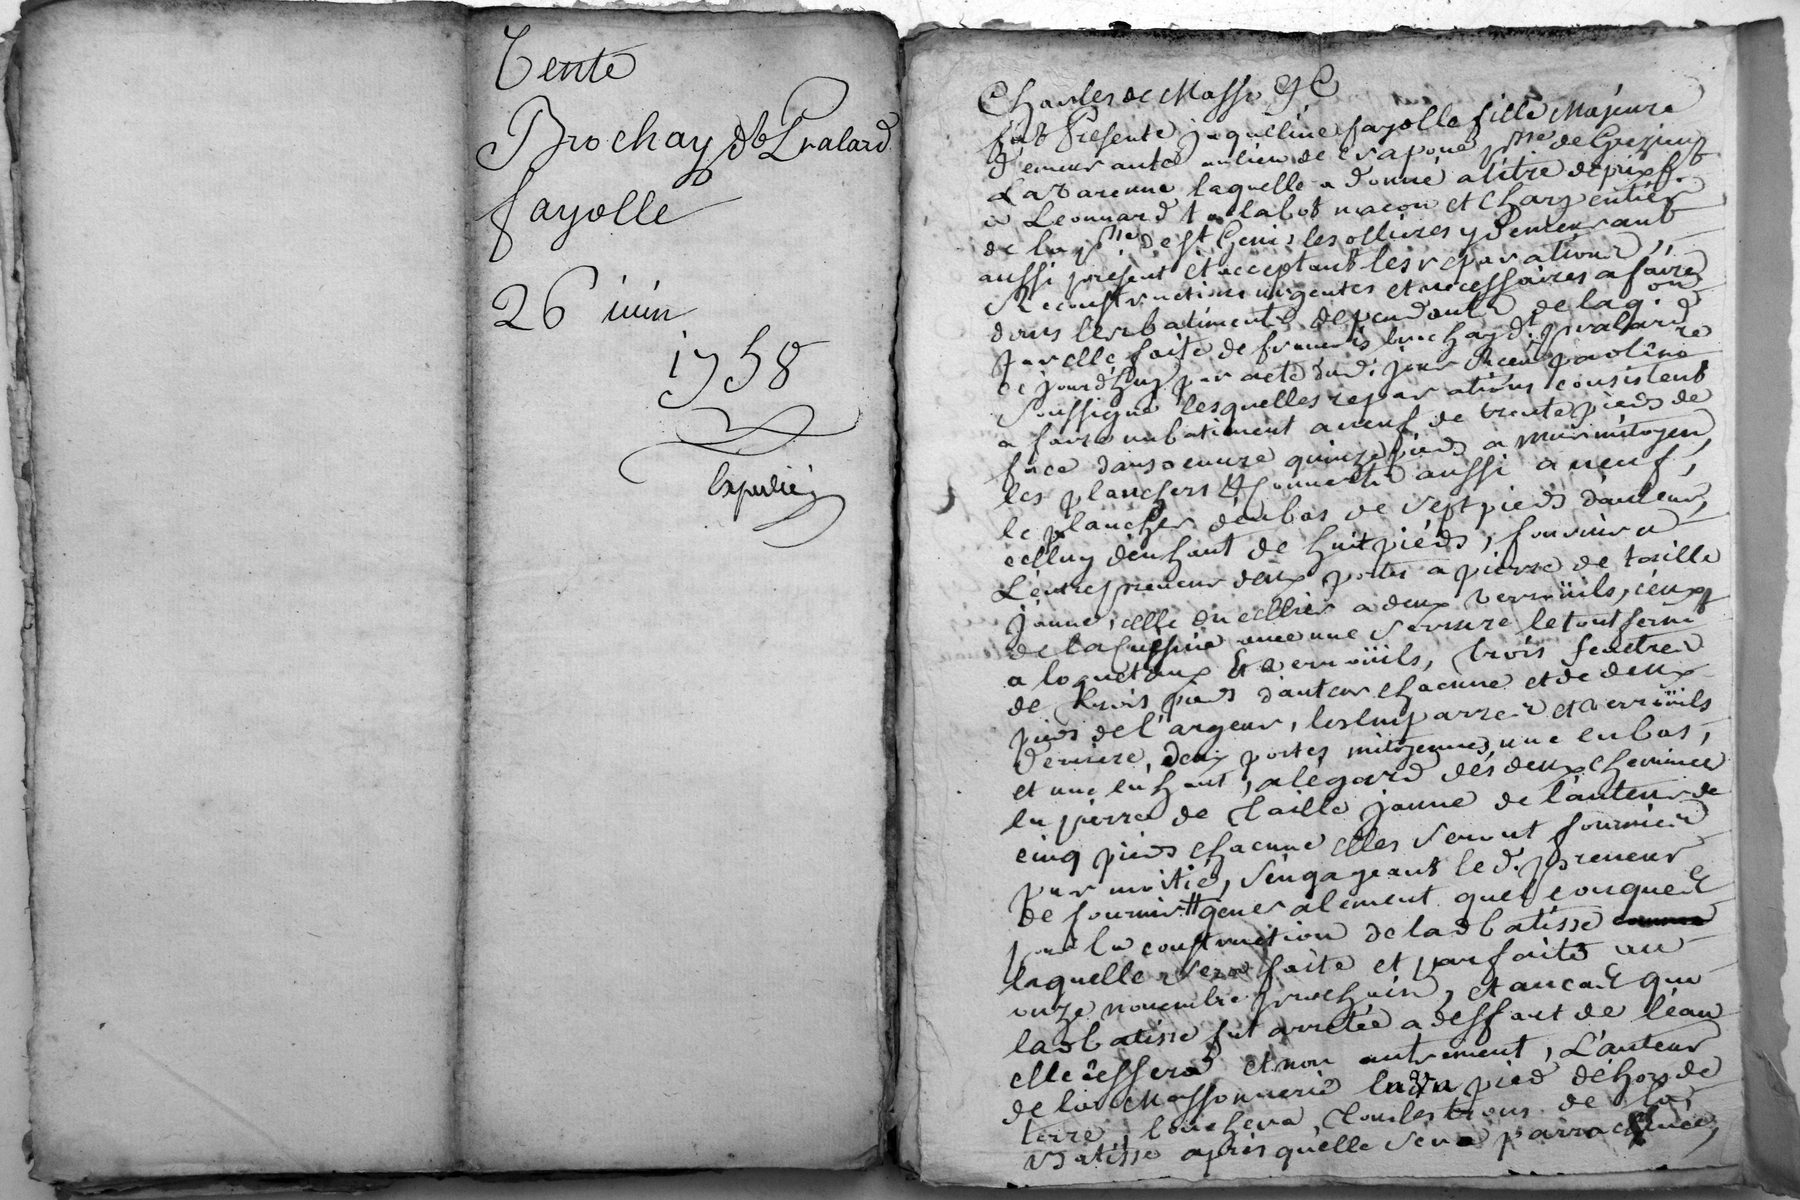 Vente
Brochay dt Pralard
fayolle
26 iuin
1758
Expedié
Charles de Masso &C
fut Presente jaqueline fayolle fille Majeure
demeurante au lieu de Craponne psse de Grezieux
La Varenne laquelle a donné a titre de prixf.
a Leonnard talabot macon et Charpentier
de la psse de st Genis les ollieres y demeurant
aussi present et acceptant les reparations
Reconstructions urgentes et necessaires a faire
dans les batiments dependants de laq.on
par elle faite de francois brochay dt pralard
ce jourdhuy par acte dud. jour Receu par le nre
soussigné lesquelles reparations consistent
a faire un batiment a neuf de trente pieds de
face dans oeuvre quinze pieds a mur mitoyen
les planchers & Couverts aussi a neuf,
le plancher d'enbas de sept pieds d'auteur,
celluy d'enhaut de huit pieds, fournira
L'entrepreneur deux portes a pierre de taille
jaune, celle du cellier a deux verroüils, ceux
de la Cuisine avec une serrure le tout fermé
a loquetaux et verroüils, trois fenetres
de trois pieds d'auteur chacune et de deux
pieds de l'argeur, les emparres et verroüils
derriere, deux portes mitoyennes, une en bas,
et une en haut, a légard des deux cheminées
en pierre de taille jaune de l'auteur de
cinq pieds chacune elles seront fournies
par moitié, s'engageant led. preneur
de fournir # generalement quelconques
pour la construction de lad batisse
laquelle sera faite et parfaite au
onze novembre prochain, et au cas que
lad batisse fut arretée a deffaut de l'eau
elle cessera et non autrement, L'auteur
de la Massonnerie pied dehors de
terre, bouchera tous les trous de la
Batisse apres quelle sera